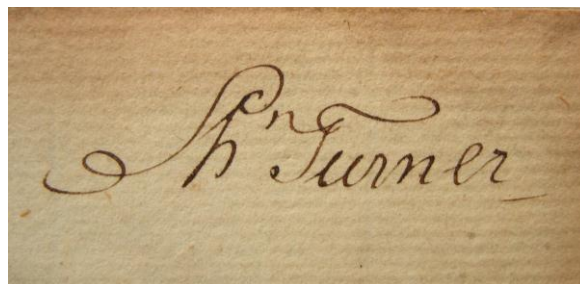 Shⁿ Turner